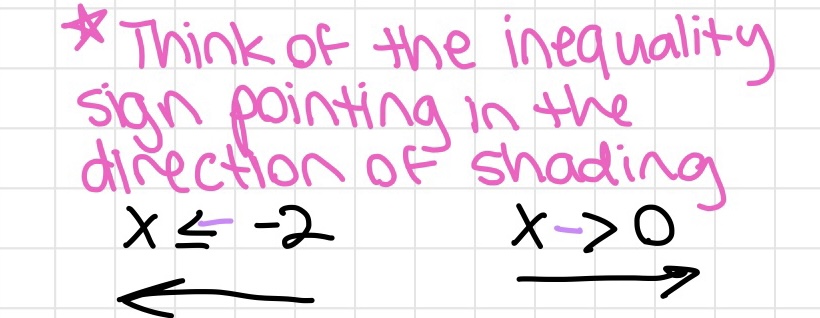 * Think of the inequality
sign pointing in the
direction of shading
x ≤ -2 x > 0